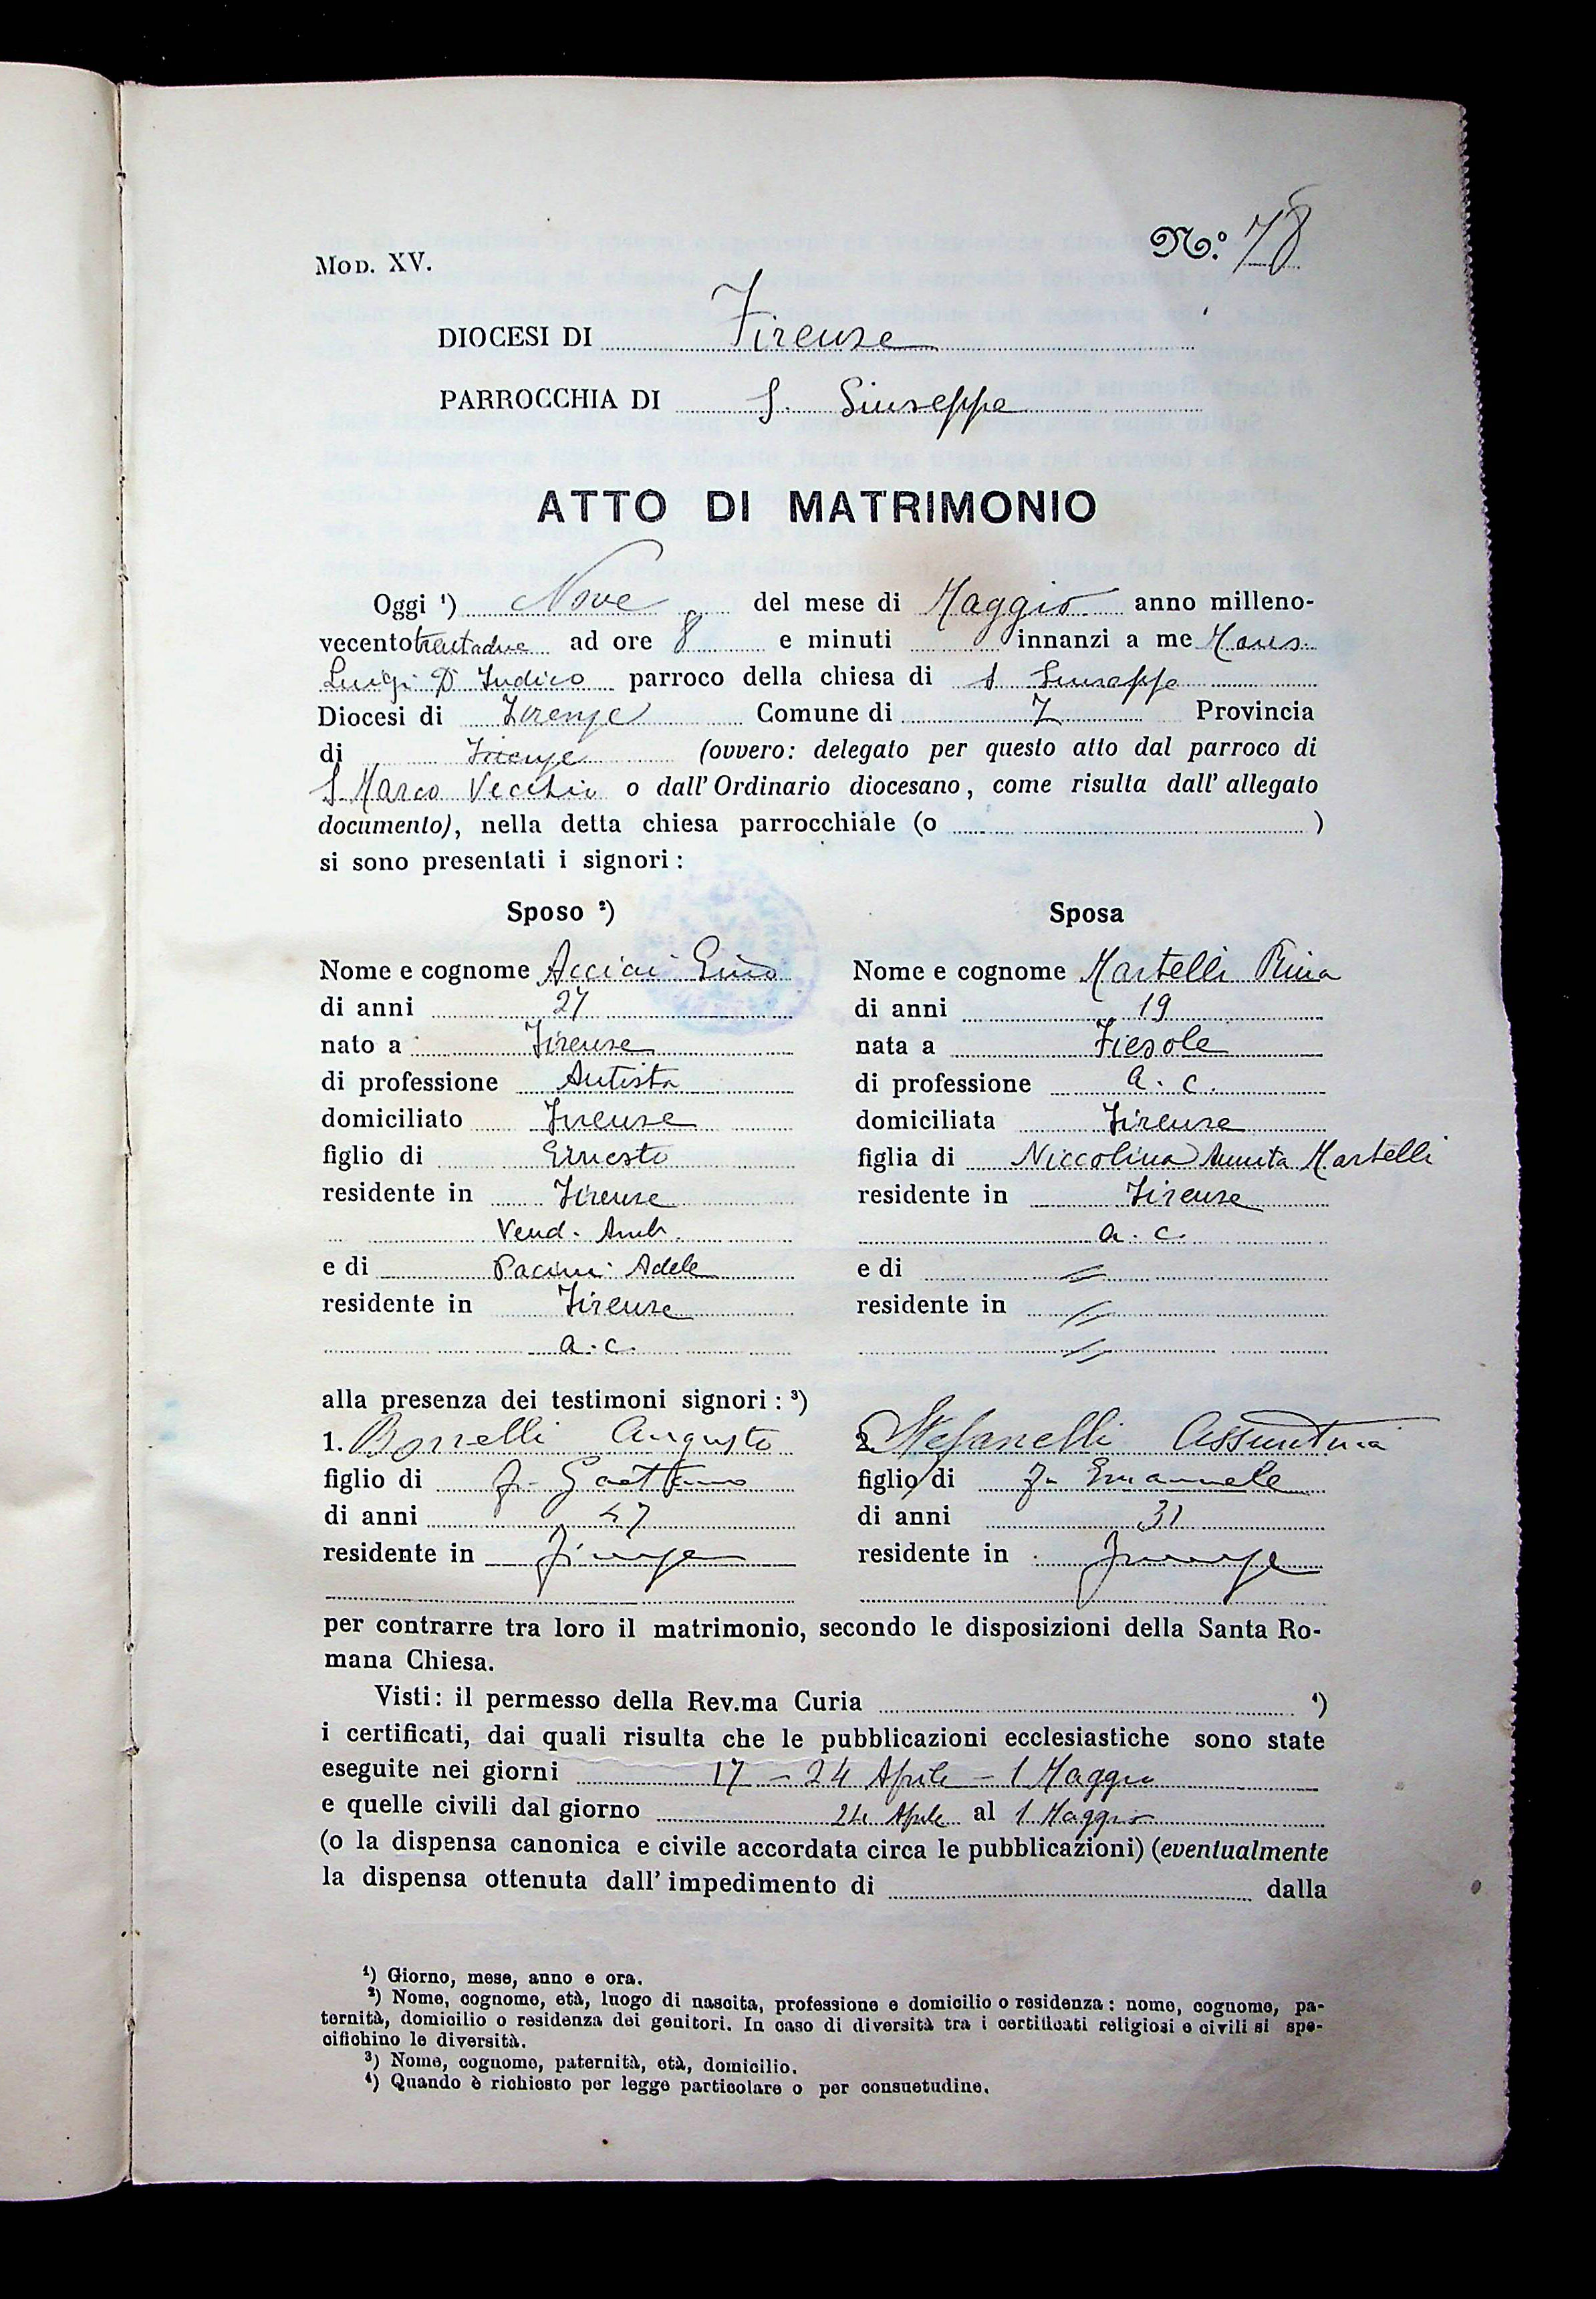 Mod. XV.
N.º 78
DIOCESI DI Firenze
PARROCCHIA DI S. Giuseppe
ATTO DI MATRIMONIO
Oggi ¹) Nove del mese di Maggio anno milleno-
vecentotrentadue ad ore 8 e minuti innanzi a me Mons.
Luigi D'Indico parroco della chiesa di S Giuseppe
Diocesi di Firenze Comune di F Provincia
di Firenze (ovvero: delegato per questo atto dal parroco di
S Marco Vecchio o dall'Ordinario diocesano, come risulta dall'allegato
documento), nella detta chiesa parrocchiale (o )
si sono presentati i signori:
Sposo ²)
Nome e cognome Acciai Gino
di anni 27
nato a Firenze
di professione Autista
domiciliato Firenze
figlio di Ernesto
residente in Firenze
Vend. Amb.
e di Pacini Adele
residente in Firenze
a. c.
Sposa
Nome e cognome Martelli Rina
di anni 19
nata a Fiesole
di professione a. c.
domiciliata Firenze
figlia di Niccolina Annita Martelli
residente in Firenze
a. c.
e di =
residente in =
=
alla presenza dei testimoni signori: ³)
1. Borrelli Augusto
figlio di fu Gaetano
di anni 47
residente in Firenze
2. Stefanelli Assuntina
figlio di fu Emanuele
di anni 31
residente in Firenze
per contrarre tra loro il matrimonio, secondo le disposizioni della Santa Ro-
mana Chiesa.
Visti: il permesso della Rev.ma Curia ⁴)
i certificati, dai quali risulta che le pubblicazioni ecclesiastiche sono state
eseguite nei giorni 17 - 24 Aprile - 1 Maggio
e quelle civili dal giorno 24 Aprile al 1 Maggio
(o la dispensa canonica e civile accordata circa le pubblicazioni) (eventualmente
la dispensa ottenuta dall'impedimento di dalla
¹) Giorno, mese, anno e ora.
²) Nome, cognome, età, luogo di nascita, professione e domicilio o residenza: nome, cognome, pa-
ternità, domicilio o residenza dei genitori. In caso di diversità tra i certificati religiosi e civili si spe-
cifichino le diversità.
³) Nome, cognome, paternità, età, domicilio.
⁴) Quando è richiesto per legge particolare o per consuetudine.